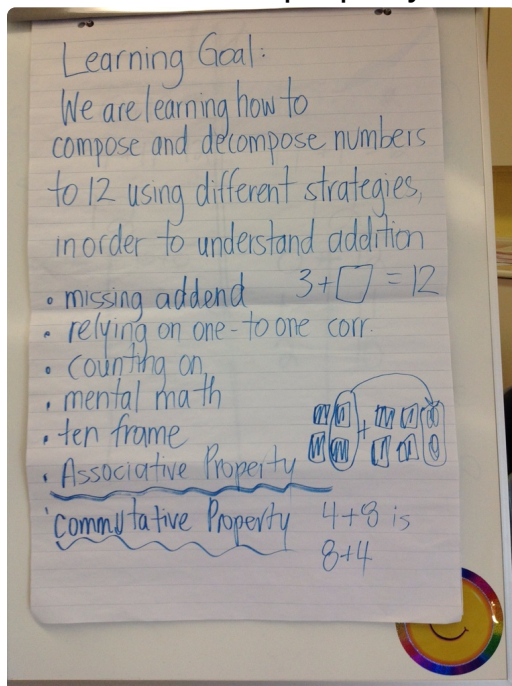 Learning Goal:
We are learning how to
compose and decompose numbers
to 12 using different strategies,
in order to understand addition
• missing addend 3+□ = 12
• relying on one-to one corr.
• counting on
• mental math
• ten frame
• Associative Property
• Commutative Property 4+8 is
8+4